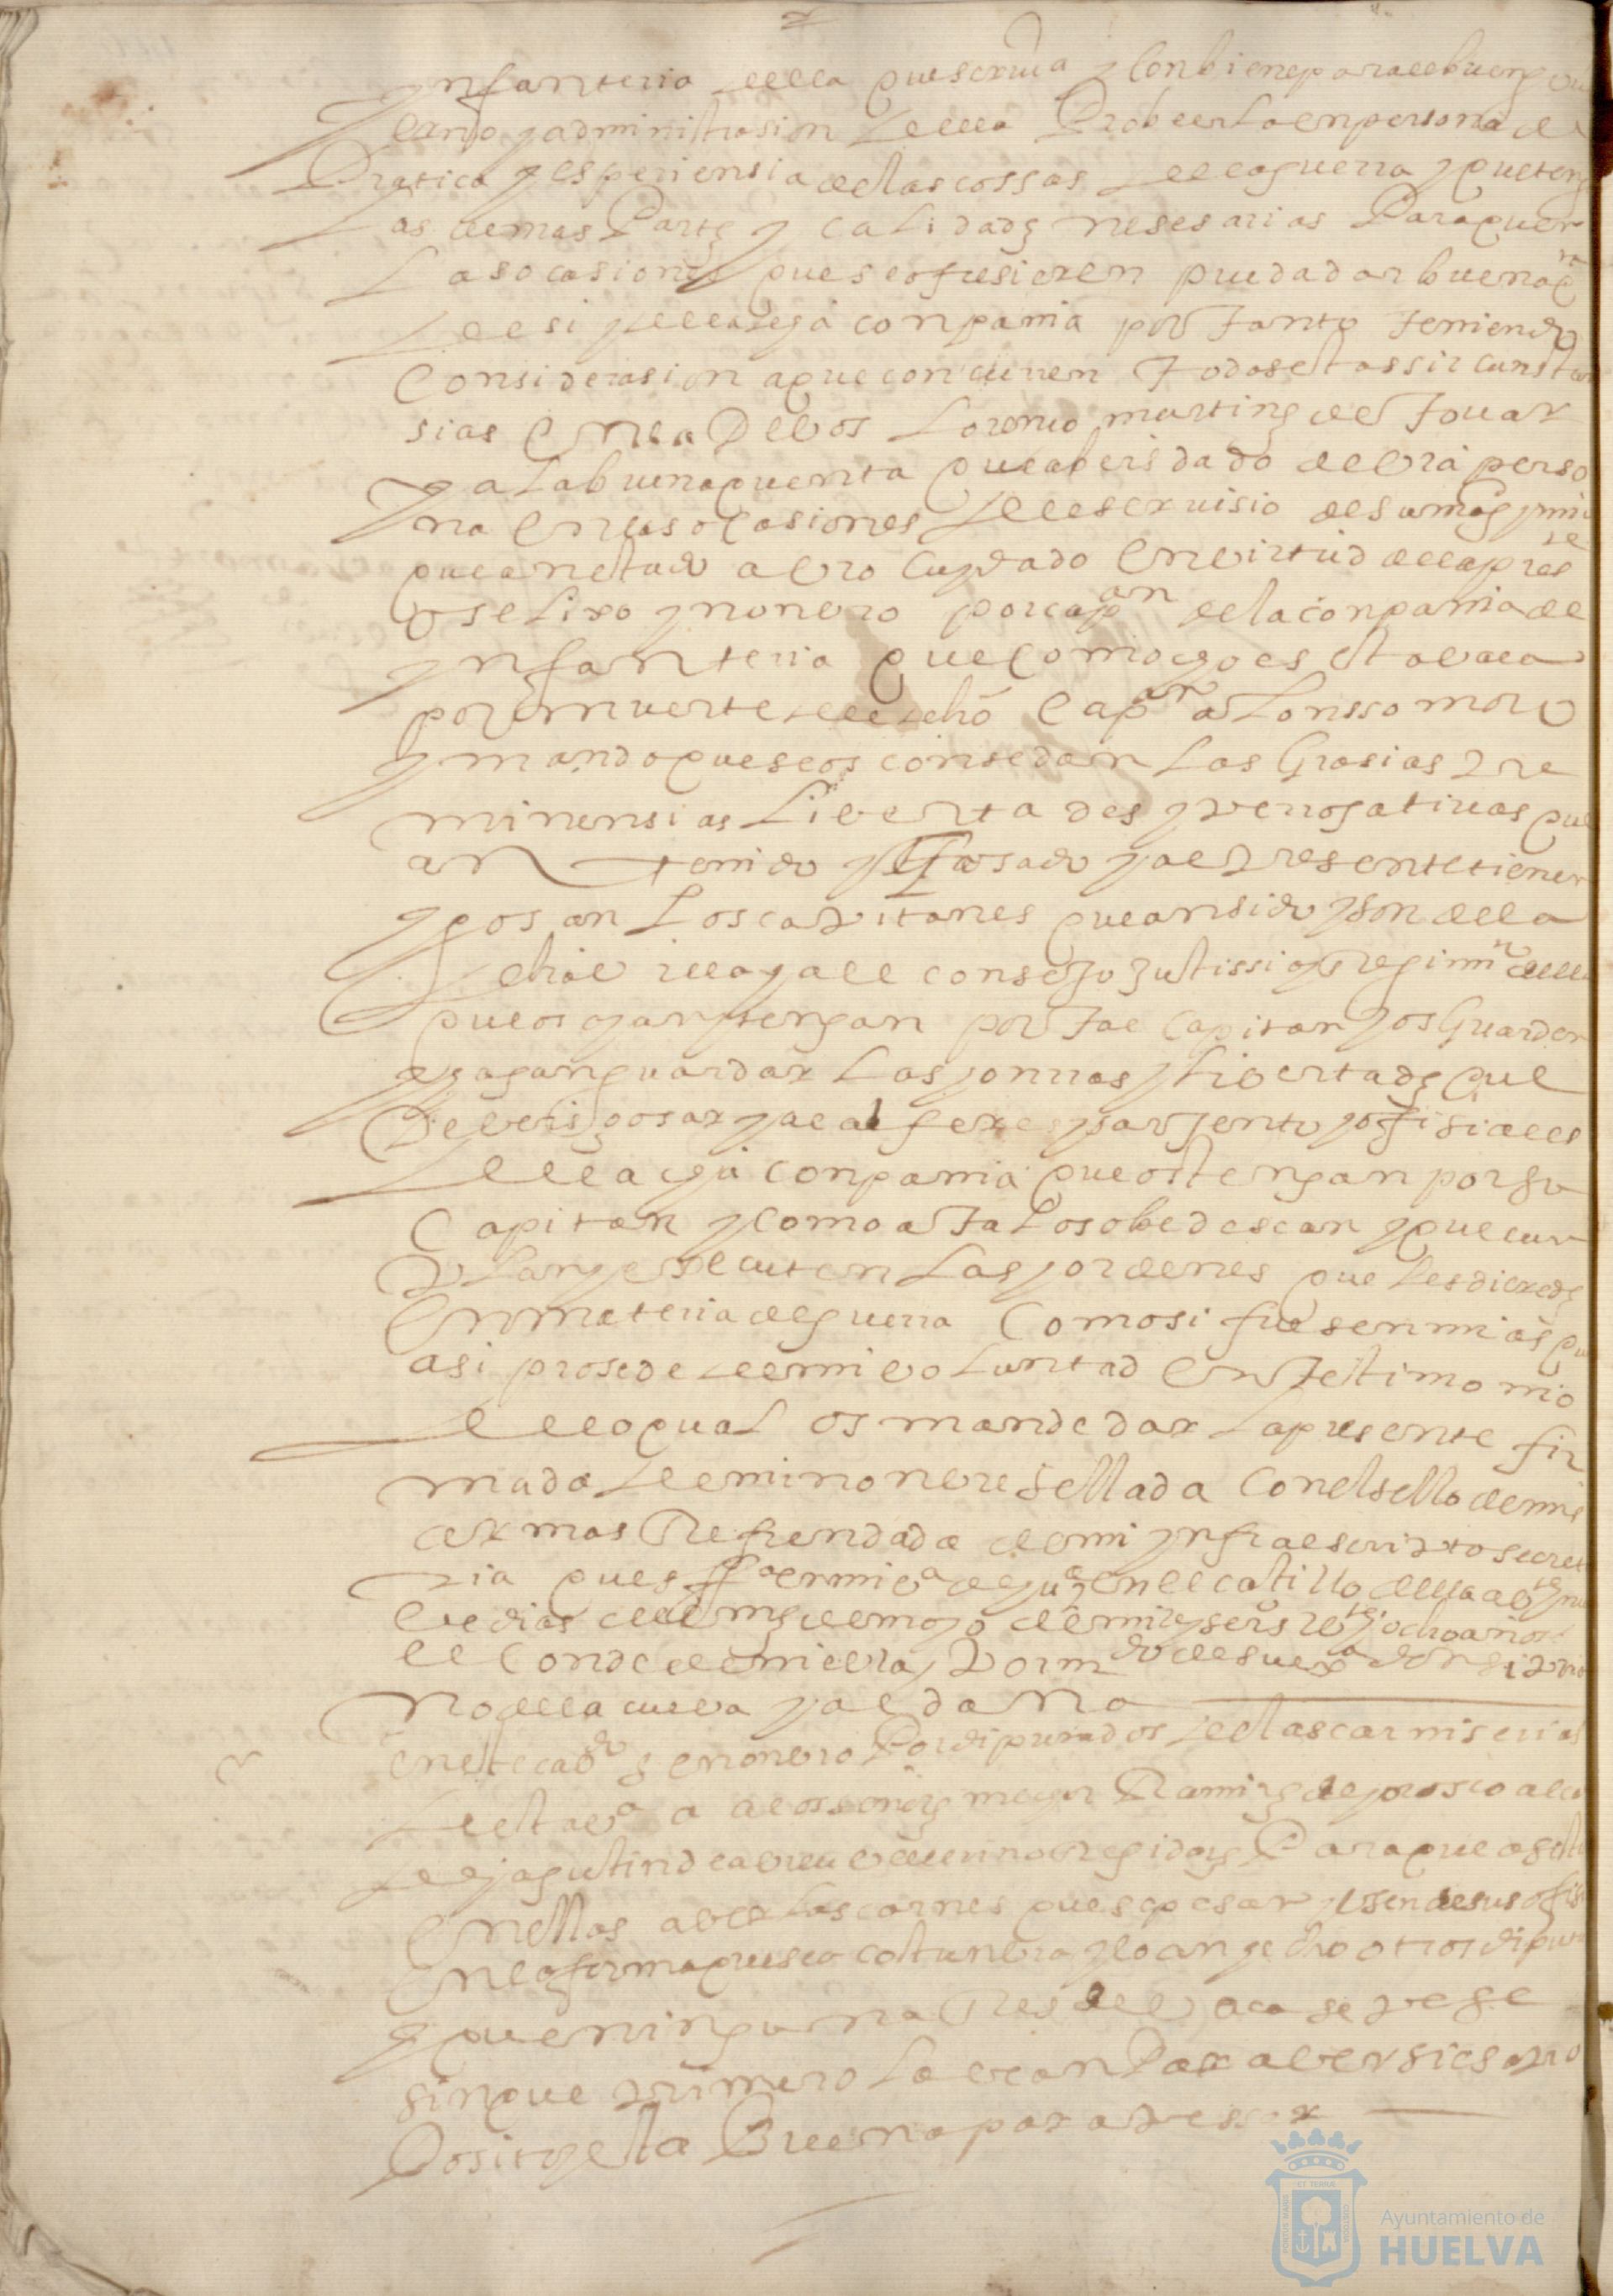 ynfanteria della que seruia y conbiene para el buen gou
ierno y administrasion della Probeerla en persona de
Pratica y esperiensia de las cossas de la guerra y que teng
las demas Partes y calidades nesesarias Para que en
las ocasiones que se ofresieren pueda dar buena qta
de si y de la dha conpania por tanto teniendo
Considerasion a que concurren todas estas sircunstan
sias en la De bos Lorenso martines de touar
y a la buena quenta que abeis dado de bra perso
na en las ocasiones del seruisio de su magd y mio
que an estado a bro cuydado en birtud de la preste
os elixo y nonbro por capan de la conpania de
ynfanteria que como dho es estaba baca
por muerte del dho Capan alonsso moro
y mando que se os consedan las Grasias Pre
minensias Libertades y prerrogatiuas que
an tenido y gosado y al presente tienen
y gosan Los capitanes que an sido y son de la
dha billa y al consejo justissia y regimio della
que os ayan y tengan por tal capitan y os Guarden
y agan guardar las honrras y libertades que
Debeis gosar y al alferes y sarjento y ofisiales
de la dha conpania que os tengan por su
Capitan y como a tal os obedescan y que cun
plan y executen las hordenes que les dieredes
En materia de guerra como si fuesen mias que
asi prosede de mi boluntad En testimonio
de lo qual os mande dar la presente fir
mada de mi nonbre sellada con el sello de mis
armas Refrendada de mi ynfraescripto secreta
ria ques ffa en mi ba de gua en el castillo della a bte y nu
ebe dias del mes de mayo de mil y seissos y ocho años
el Conde de niebla Por mdo de su exa
no de la cueba y aldana
En este cabdo se nonbro Por diputados de las carniserias
desta ba a a los señores Ramires de alca
y agustin de abreu regidores Para que asistan
En ellas a ber las carnes que se pesan y usen de sus ofisios
En la forma que se a costunbra y lo an hecho otros diputa
y que ninguna Res de baca se pese
sin que primero la bean Para ber si es a pro
Posito y esta Buena para pessar
Ayuntamiento de
HUELVA